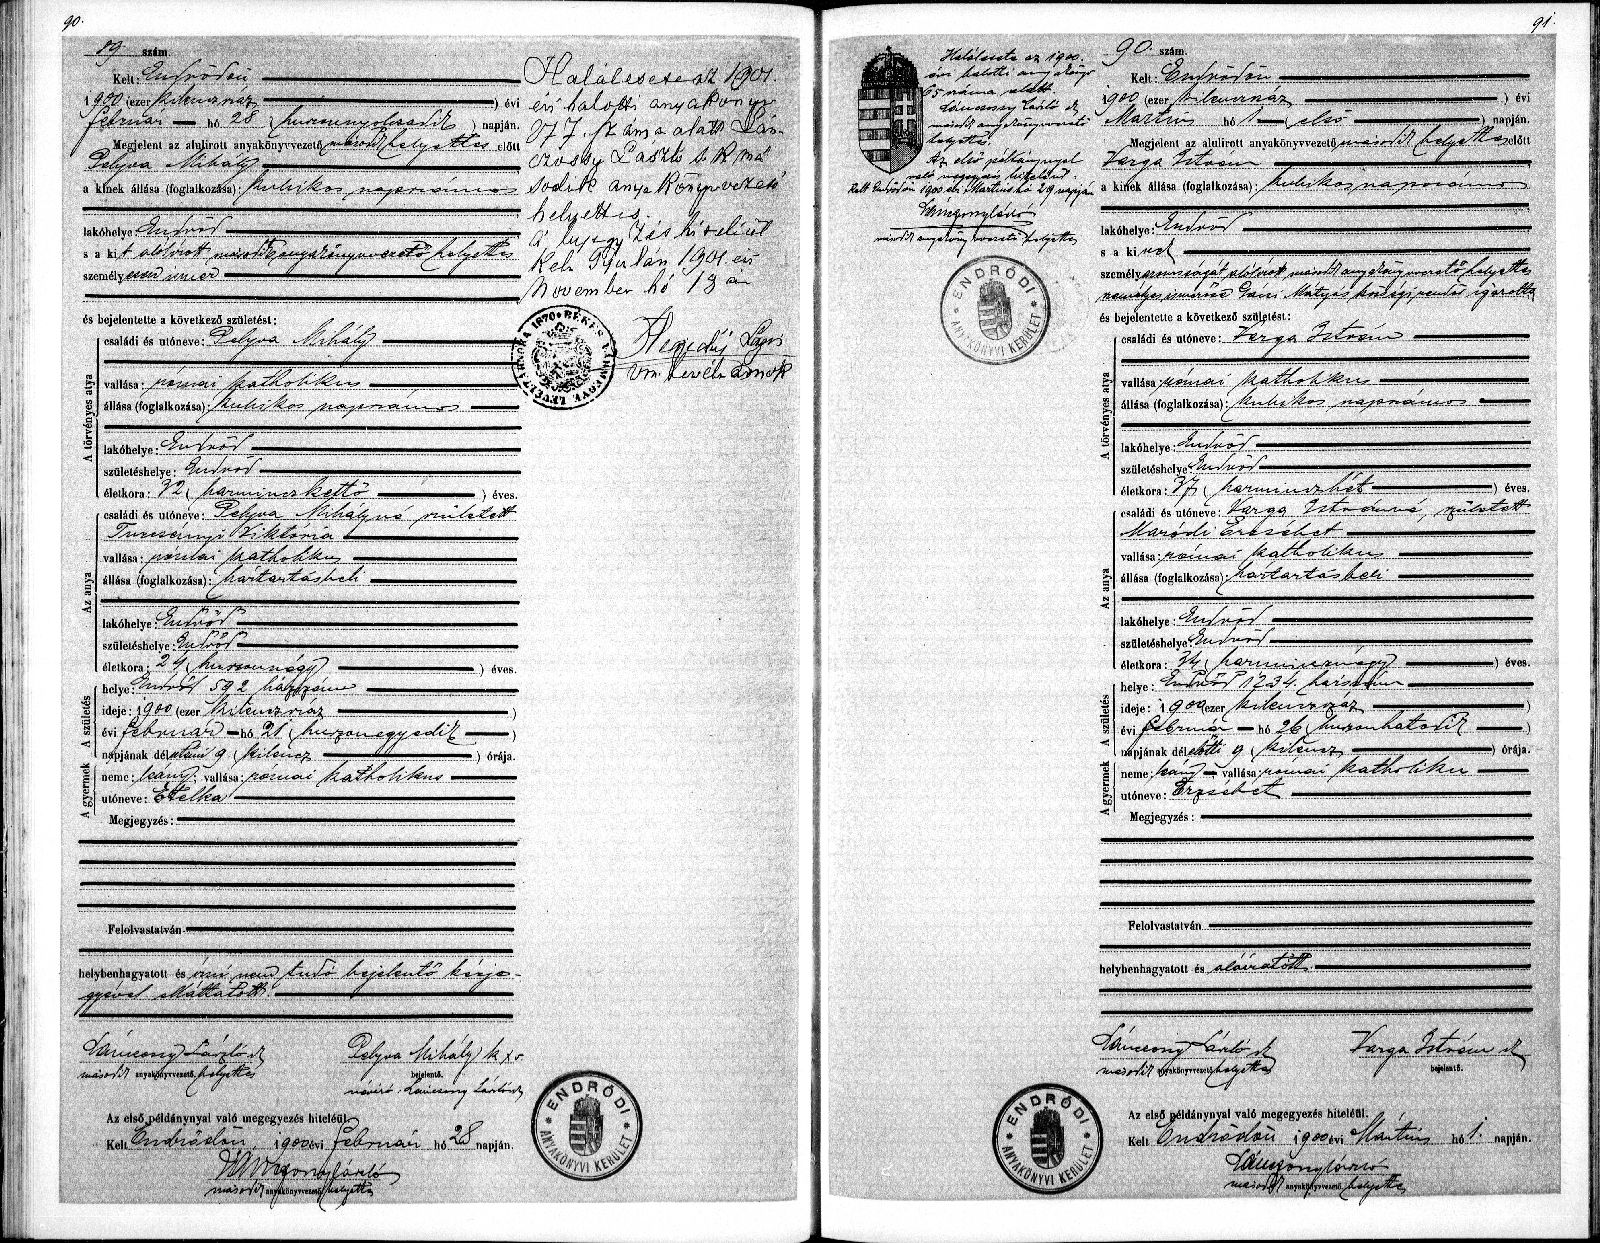 90.
89. szám.
Kelt: Endrődön
1900 (ezer kilenczszáz) évi
február hó 28 (huszonnyolczadik) napján.
Megjelent az alulirott anyakönyvvezető második helyettes előtt
Pelyva Mihály
a kinek állása (foglalkozása): kubikos napszámos
lakóhelye: Endrőd
s a kit alólirott második anyakönyvvezető helyettes
személyesen ismer
és bejelentette a következő születést:
A törvényes atya
családi és utóneve: Pelyva Mihály
vallása: római katholikus
állása (foglalkozása): kubikos napszámos
lakóhelye: Endrőd
születéshelye: Endrőd
életkora: 32 (harminczkettő) éves.
Az anya
családi és utóneve: Pelyva Mihályné született
Turcsányi Viktória
vallása: római katholikus
állása (foglalkozása): háztartásbeli
lakóhelye: Endrőd
születéshelye: Endrőd
életkora: 24 (huszonnégy) éves.
A születés
helye: Endrőd 592 házszám
ideje: 1900 (ezer kilenczszáz)
évi február hó 21 (huszonegyedik)
napjának délutáni 9 (kilencz) órája.
A gyermek
neme: leány; vallása: római katholikus
utóneve: Etelka
Megjegyzés:
Felolvastatván
helybenhagyatott és irni nem tudó bejelentő kézje-
gyével elláttatott.
Lánczony László sk
második anyakönyvvezető helyettes
Pelyva Mihály k x v
bejelentő.
névíró: Lánczony László sk
Az első példánynyal való megegyezés hiteléül.
Kelt Endrődön, 1900 évi február hó 28 napján.
Lánczony László
második anyakönyvvezető helyettes
Halálesete az 1901.
évi halotti anyakönyv
277. száma alatt
László s. k. má
sodik anyakönyvvezető
helyettes.
A bejegyzés hiteléül
Kelt Gyulán 1901 évi
november hó 13 án
Hegedűs Lajos
vm. levéltárnok
BÉKÉS VÁRMEGYE LEVÉLTÁRNOKA 1870
ENDRŐDI
ANYAKÖNYVI KERÜLET
91.
Halálesete az 1900.
évi halotti anyakönyv
65 száma alatt
Lánczony László sk
második anyakönyvvezető
helyettes.
Az első példánynyal
való megegyezés hiteléül.
Kelt Endrődön 1900 évi Mártius hó 29 napján
Lánczony László
második anyakönyvvezető helyettes
ENDRŐDI
ANYAKÖNYVI KERÜLET
90. szám.
Kelt: Endrődön
1900 (ezer kilenczszáz) évi
Mártius hó 1 (első) napján.
Megjelent az alulirott anyakönyvvezető második helyettes előtt
Varga István
a kinek állása (foglalkozása): kubikos napszámos
lakóhelye: Endrőd
s a kinek
személyazonosságát alólirott második anyakönyvvezető helyettes
személyes ismerőse Mátyás községi rendőr igazolta
és bejelentette a következő születést:
A törvényes atya
családi és utóneve: Varga István
vallása: római katholikus
állása (foglalkozása): kubikos napszámos
lakóhelye: Endrőd
születéshelye: Endrőd
életkora: 37 (harminczhét) éves.
Az anya
családi és utóneve: Varga Istvánné, született
Maródi Erzsébet
vallása: római katholikus
állása (foglalkozása): háztartásbeli
lakóhelye: Endrőd
születéshelye: Endrőd
életkora: 34 (harmincznégy) éves.
A születés
helye: Endrőd 1734. házszám
ideje: 1900 (ezer kilenczszáz)
évi február hó 26 (huszonhatodik)
napjának délelőtti 9 (kilencz) órája.
A gyermek
neme: leány vallása: római katholikus
utóneve: Erzsébet
Megjegyzés:
Felolvastatván
helybenhagyatott és aláiratott.
Lánczony László sk
második anyakönyvvezető helyettes
Varga István sk
bejelentő.
Az első példánynyal való megegyezés hiteléül.
Kelt Endrődön 1900 évi Mártius hó 1. napján.
Lánczony László
második anyakönyvvezető helyettes
ENDRŐDI
ANYAKÖNYVI KERÜLET
ENDRŐDI
ANYAKÖNYVI KERÜLET